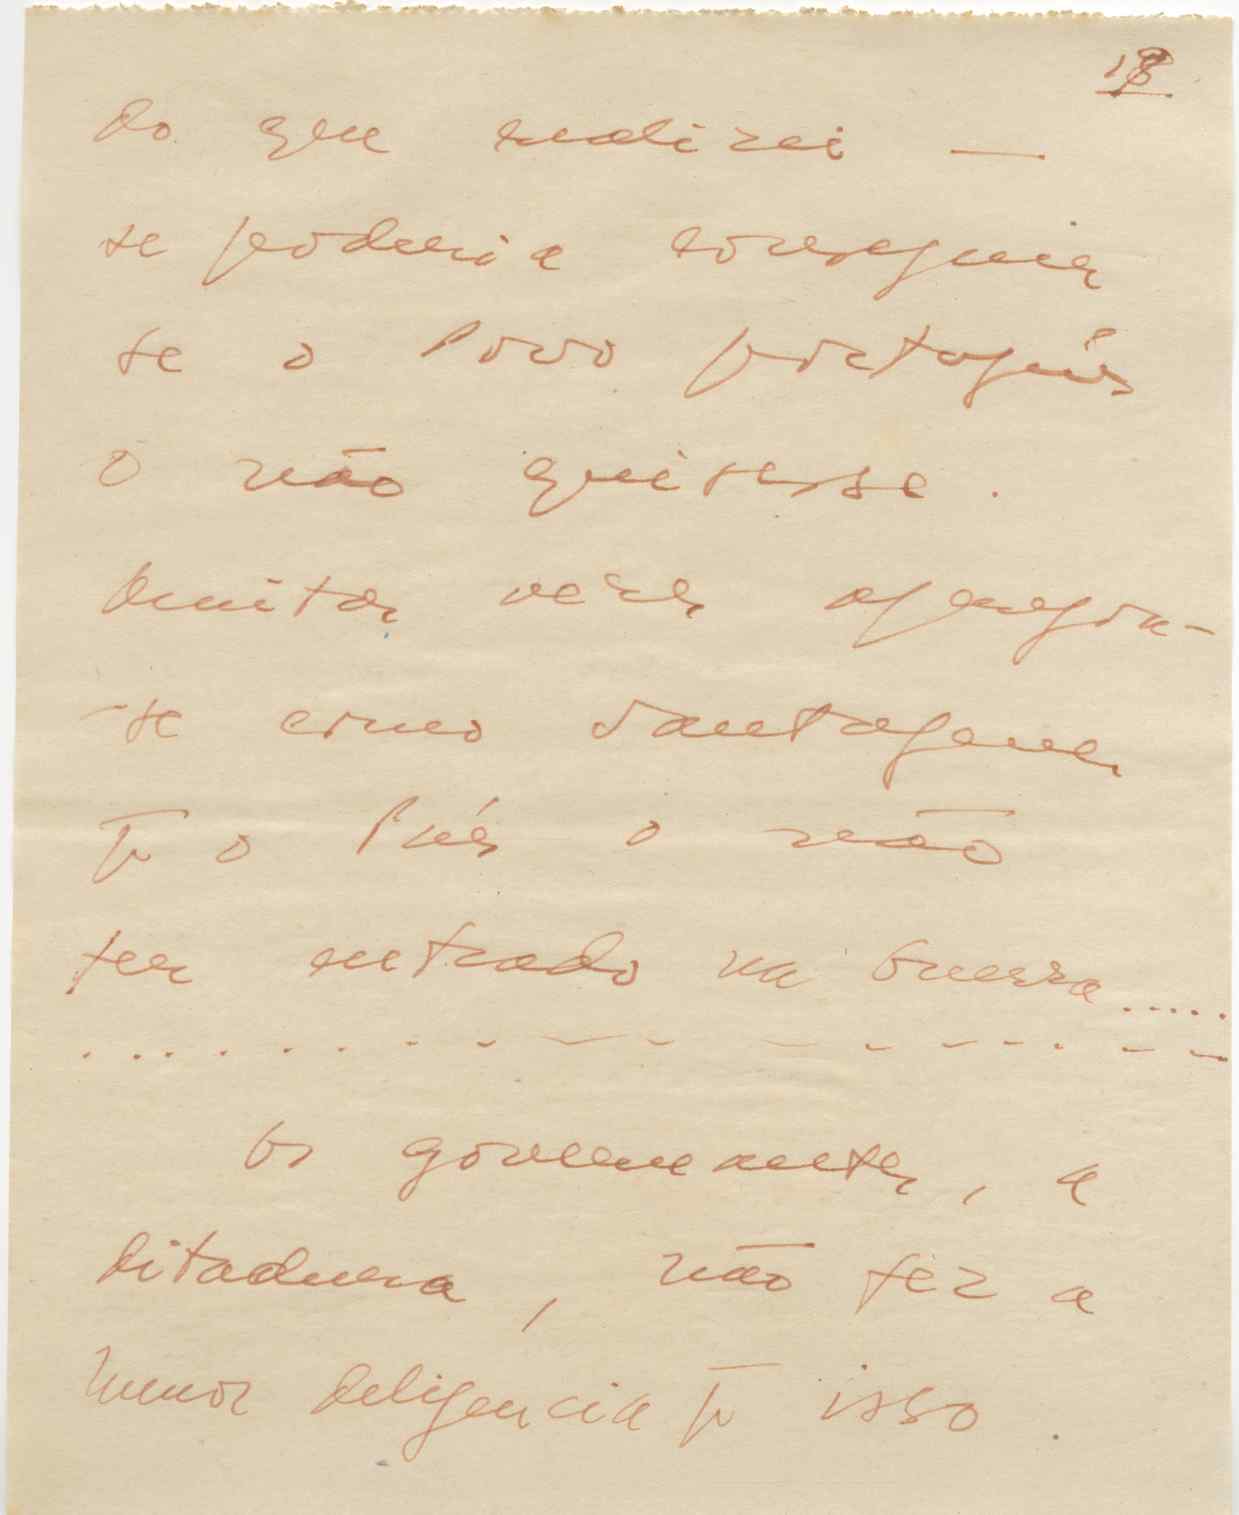 18
do que realizei —
se poderia conseguir
se o Povo português
o não quisesse.
Muitas vezes apregoa-
-se como vantagem
p̄ o País o não
ter entrado na Guerra.....
. . . . . . . . - — - - - - - . - -
Os governantes, a
ditadura, não fez a
menor deligencia p̄ isso.